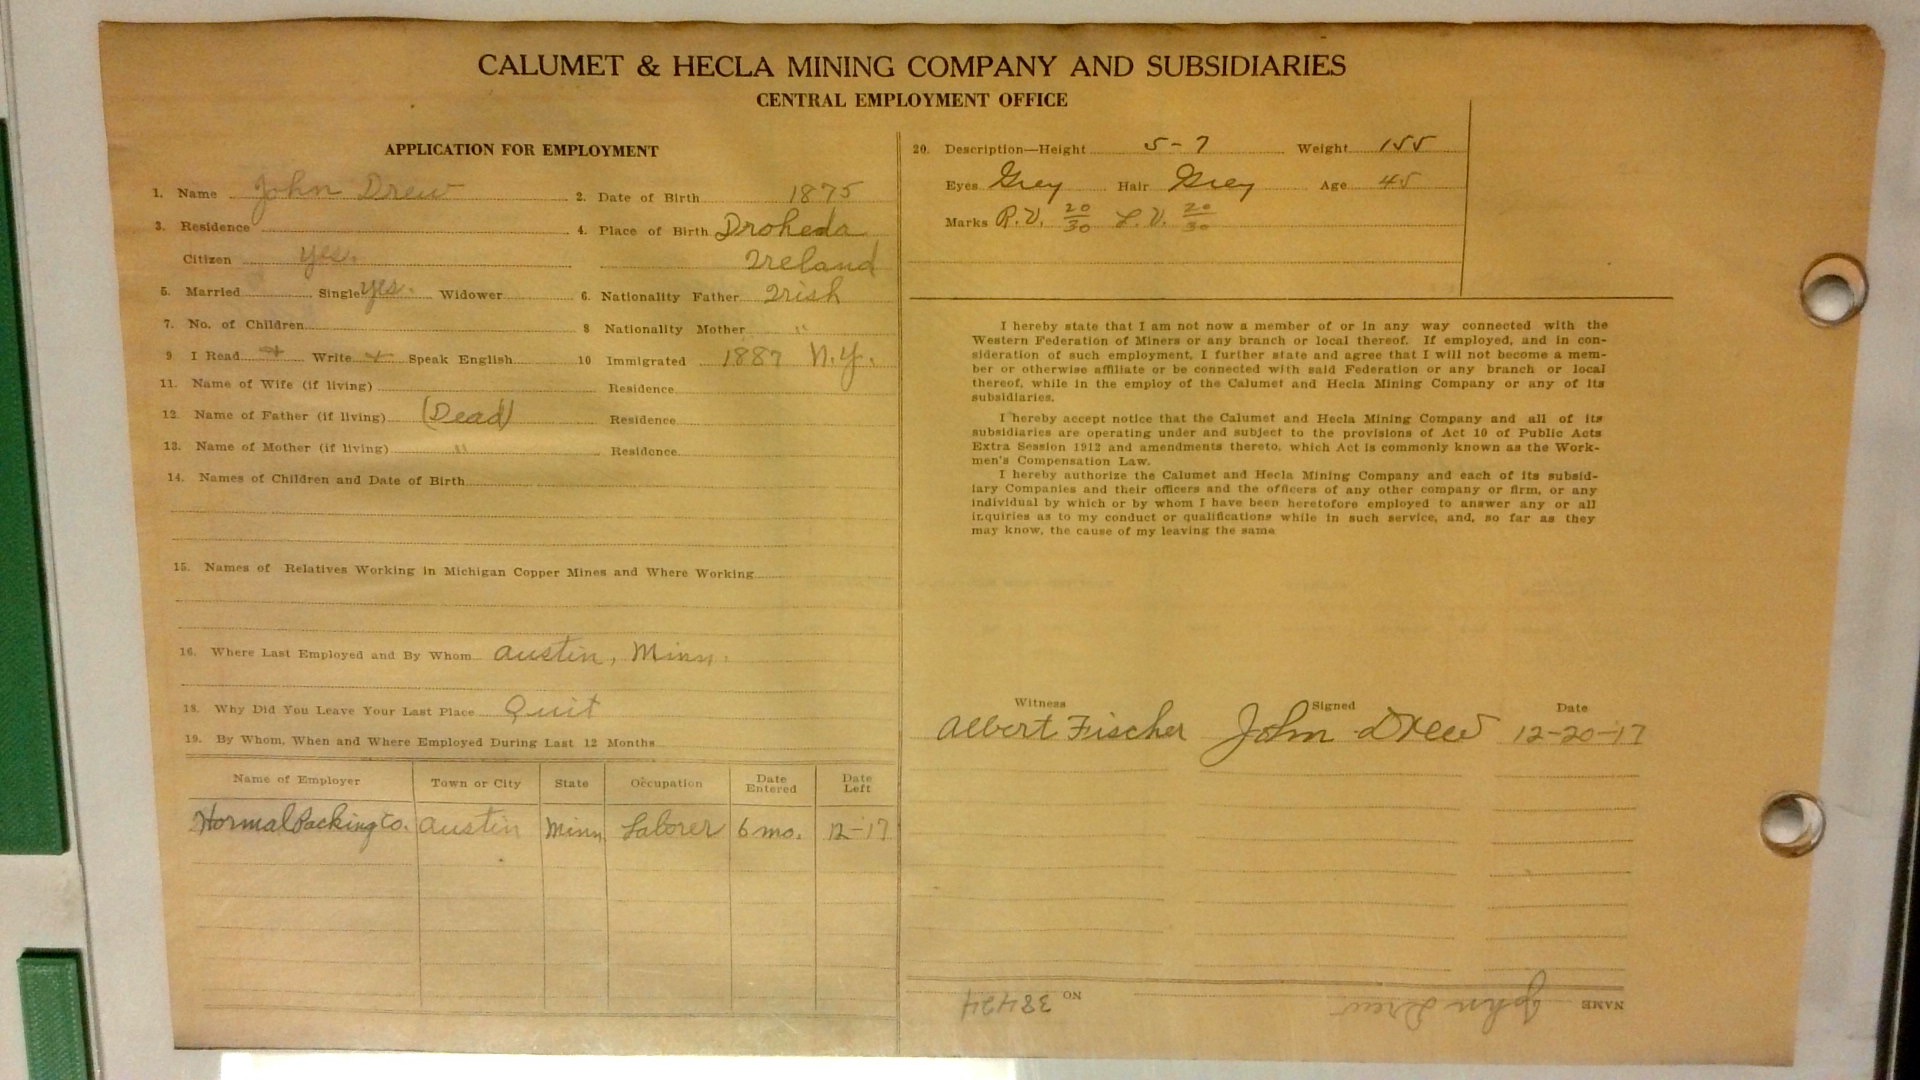 CALUMET & HECLA MINING COMPANY AND SUBSIDIARIES
CENTRAL EMPLOYMENT OFFICE
APPLICATION FOR EMPLOYMENT
1. Name John Drew 2. Date of Birth 1875
3. Residence 4. Place of Birth Droheda
Citizen yes. Ireland
5. Married Single yes. Widower 6. Nationality Father Irish
7. No. of Children 8 Nationality Mother "
9 I Read + Write + Speak English 10 Immigrated 1887 N.Y.
11. Name of Wife (if living) Residence
12. Name of Father (if living) (Dead) Residence
13. Name of Mother (if living) " Residence
14. Names of Children and Date of Birth
15. Names of Relatives Working in Michigan Copper Mines and Where Working
16. Where Last Employed and By Whom Austin, Minn.
18. Why Did You Leave Your Last Place Quit
19. By Whom, When and Where Employed During Last 12 Months
Name of Employer Town or City State Occupation Date Entered Date Left
Hormal Packing Co. Austin Minn. Laborer 6 mo. 12-17
20. Description—Height 5-7 Weight 155
Eyes Grey Hair Grey Age 45
Marks R.V. 20/30 L.V. 20/30
I hereby state that I am not now a member of or in any way connected with the
Western Federation of Miners or any branch or local thereof. If employed, and in con-
sideration of such employment, I further state and agree that I will not become a mem-
ber or otherwise affiliate or be connected with said Federation or any branch or local
thereof, while in the employ of the Calumet and Hecla Mining Company or any of its
subsidiaries.
I hereby accept notice that the Calumet and Hecla Mining Company and all of its
subsidiaries are operating under and subject to the provisions of Act 10 of Public Acts
Extra Session 1912 and amendments thereto, which Act is commonly known as the Work-
men's Compensation Law.
I hereby authorize the Calumet and Hecla Mining Company and each of its subsid-
iary Companies and their officers and the officers of any other company or firm, or any
individual by which or by whom I have been heretofore employed to answer any or all
inquiries as to my conduct or qualifications while in such service, and, so far as they
may know, the cause of my leaving the same
Witness Signed Date
Albert Fischer John Drew 12-20-17
NAME John Drew NO 38424